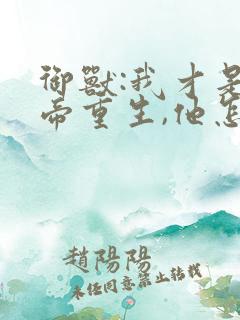 御獸:我才是
帝重生,他怎
趙陽陽
未任同意禁止轉載